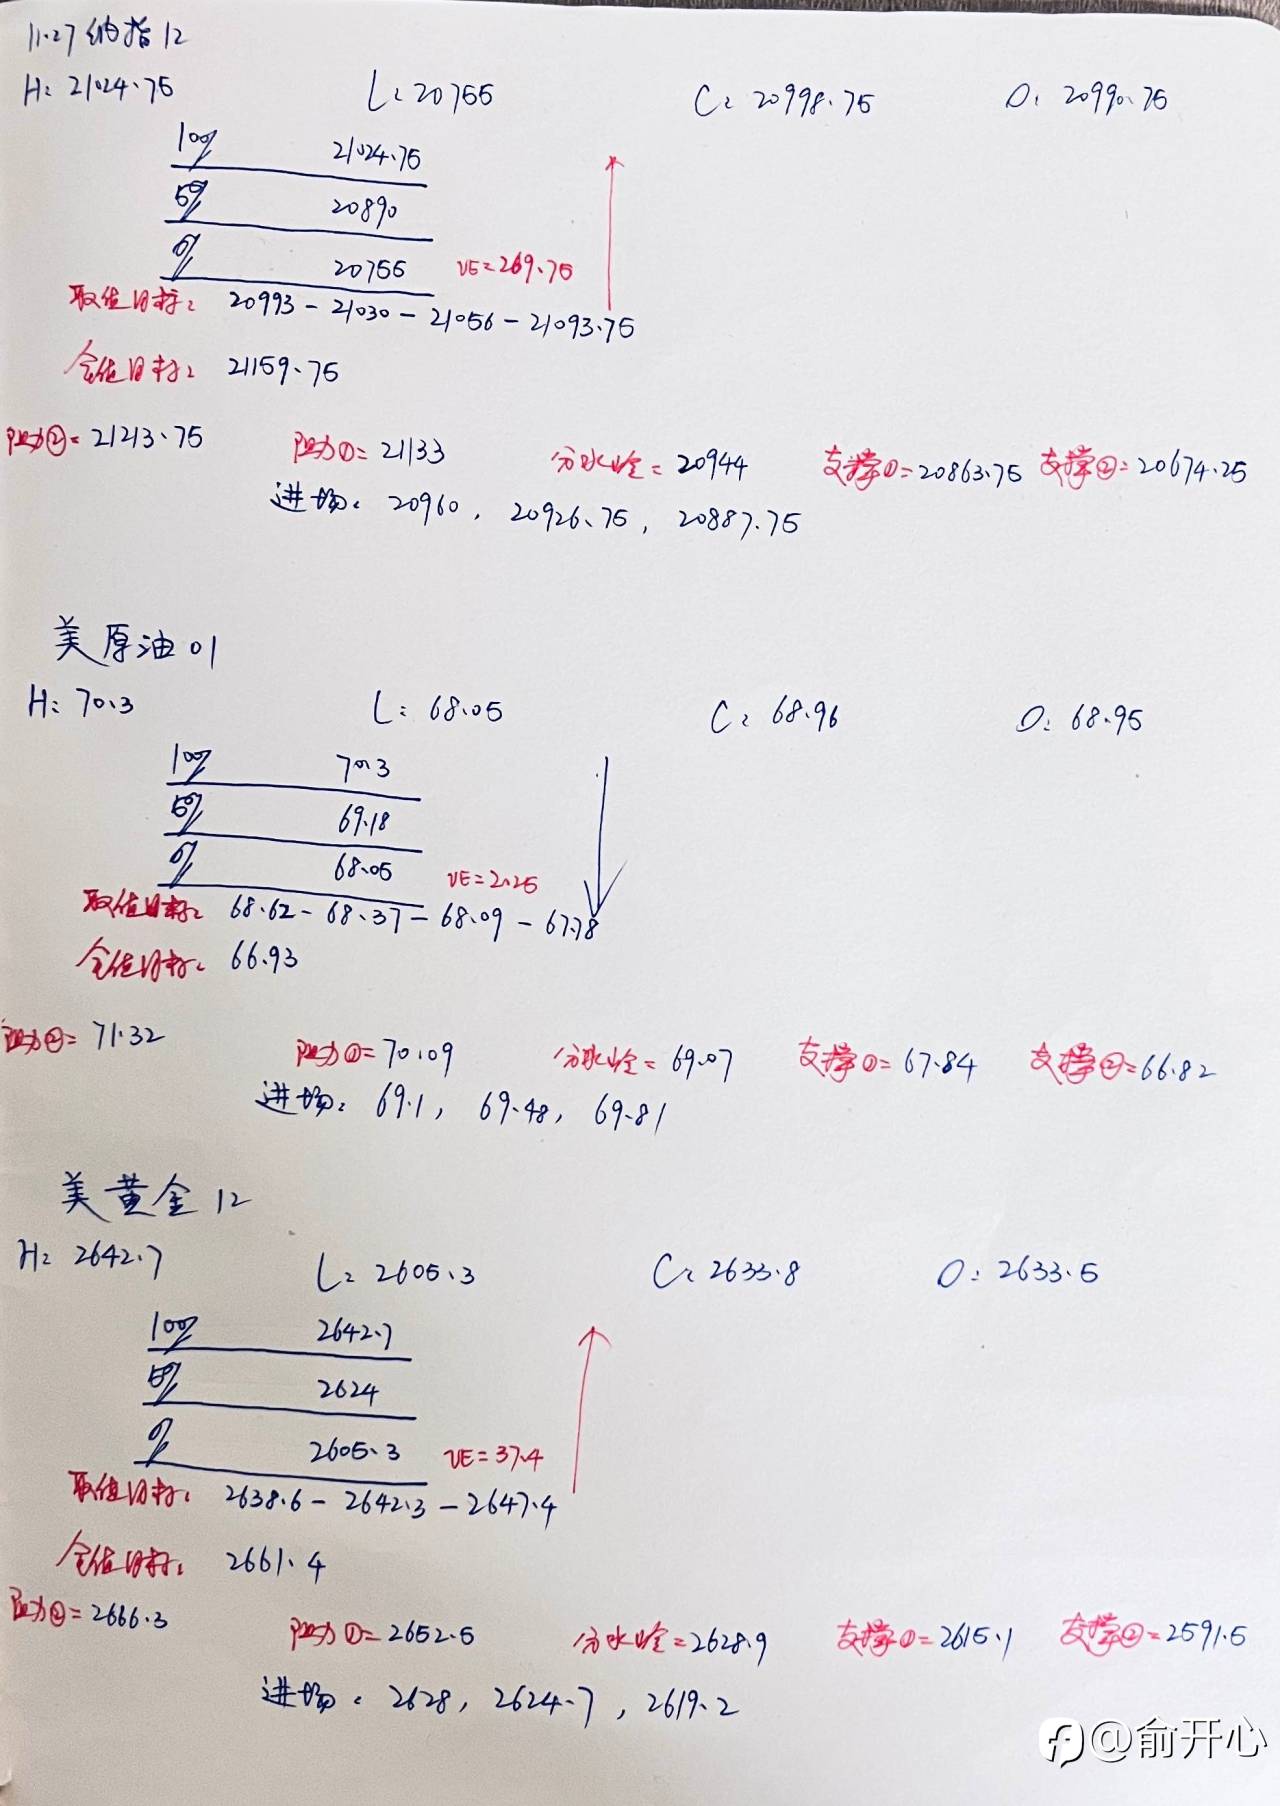 11.27 纳指12
H: 21024.75 L: 20755 C: 20998.75 O: 20990.75
100% 21024.75
50% 20890
0% 20755 VE=269.75
取值目标: 20993-21030-21056-21093.75
全值目标: 21159.75
阻力②=21213.75 阻力①=21133 分水岭=20944 支撑①=20863.75 支撑②=20674.25
进场: 20960, 20926.75, 20887.75
美原油01
H: 70.3 L: 68.05 C: 68.96 O: 68.95
100% 70.3
50% 69.18
0% 68.05 VE=2.25
取值目标: 68.62-68.37-68.09-67.78
全值目标: 66.93
阻力②=71.32 阻力①=70.09 分水岭=69.07 支撑①=67.84 支撑②=66.82
进场: 69.1, 69.48, 69.81
美黄金12
H: 2642.7 L: 2605.3 C: 2633.8 O: 2633.5
100% 2642.7
50% 2624
0% 2605.3 VE=37.4
取值目标: 2638.6-2642.3-2647.4
全值目标: 2661.4
阻力②=2666.3 阻力①=2652.5 分水岭=2628.9 支撑①=2615.1 支撑②=2591.5
进场: 2628, 2624.7, 2619.2
@俞开心